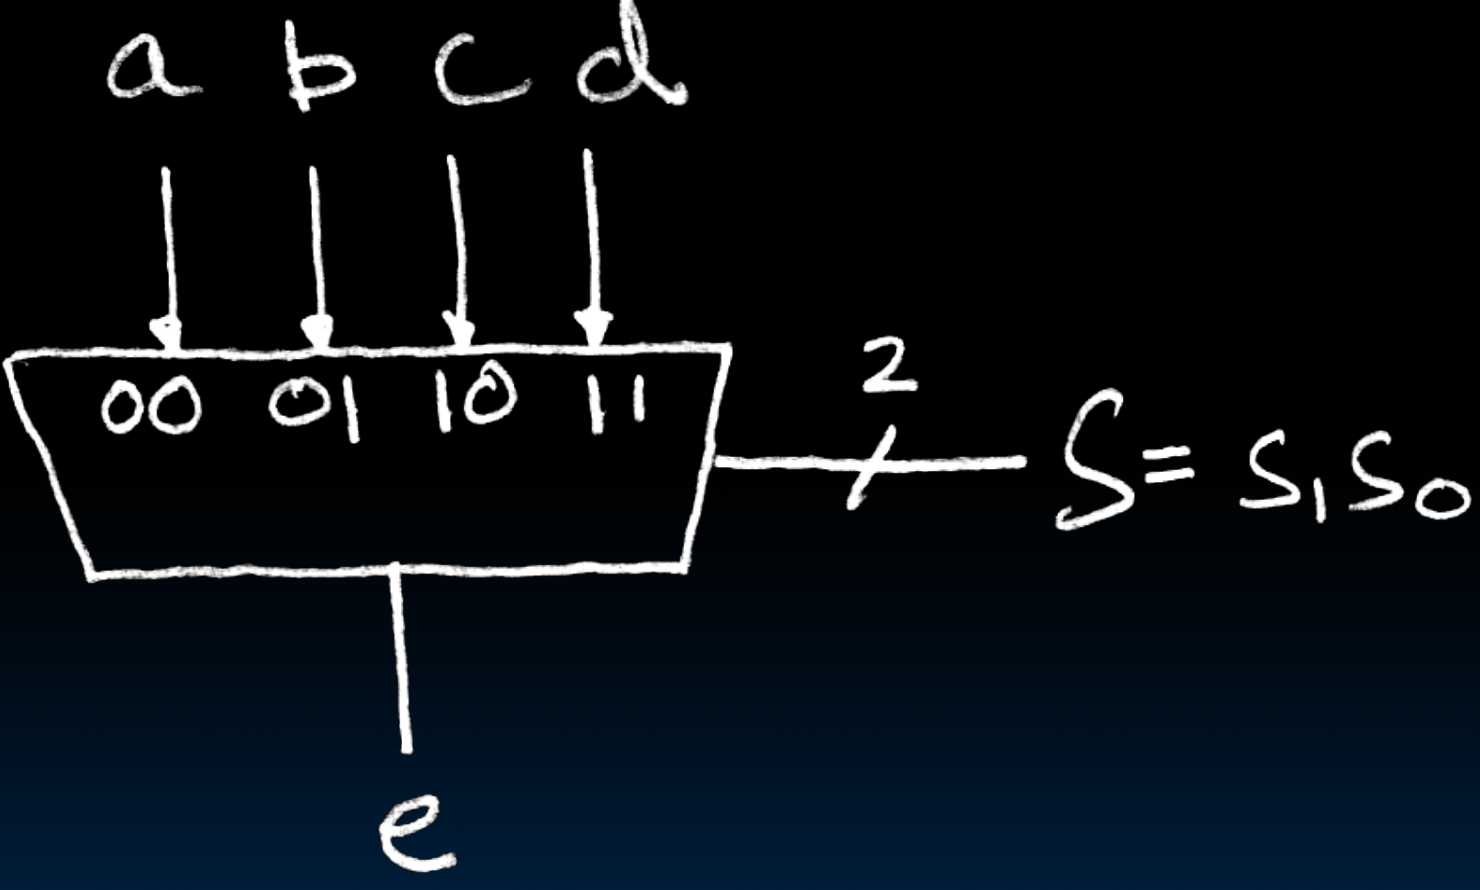 a b c d
00 01 10 11
2
S = S₁S₀
e